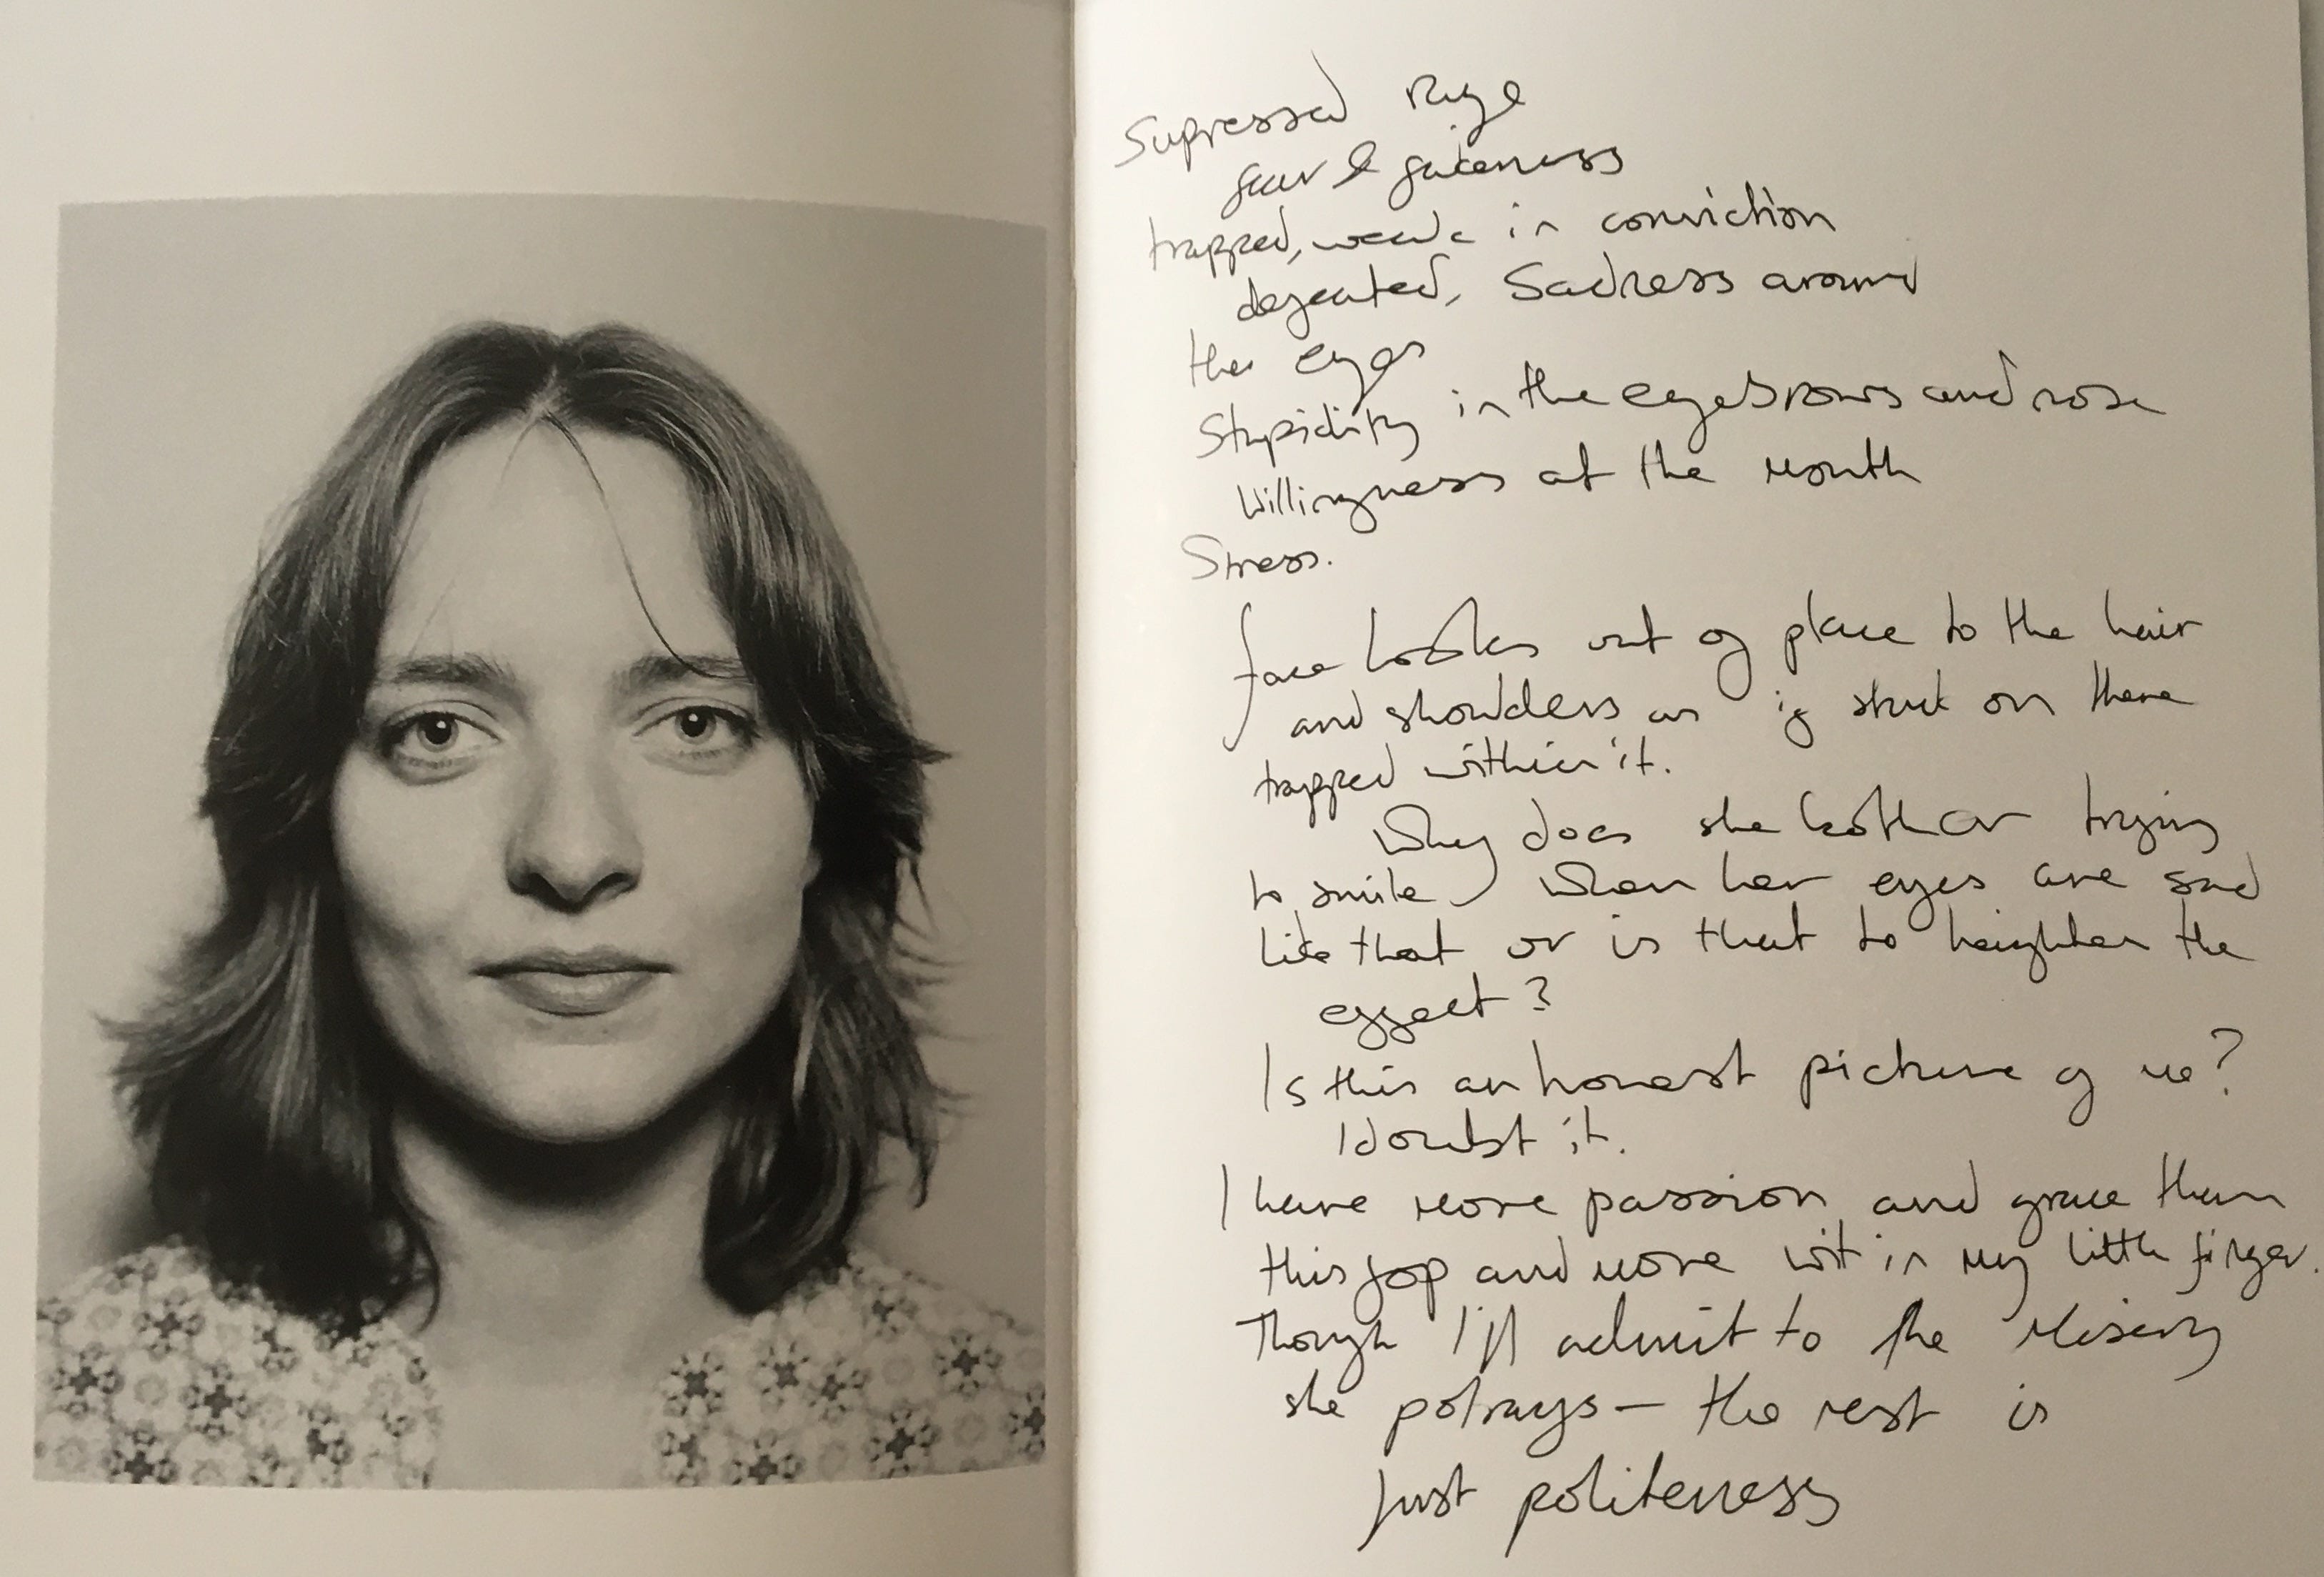 Supressed Rage
fear & fakeness
trapped, weak in conviction
defeated, Sadness around
the eyes
Stupidity in the eyebrows and nose
Willingness at the mouth
Stress.
face looks out of place to the hair
and shoulders as if stuck on there
trapped within it.
Why does she bother trying
to smile when her eyes are sad
like that or is that to heighten the
effect?
Is this an honest picture of me?
I doubt it.
I have more passion and grace than
this fop and more wit in my little finger.
Though I'll admit to the Misery
she potrays — the rest is
just politeness